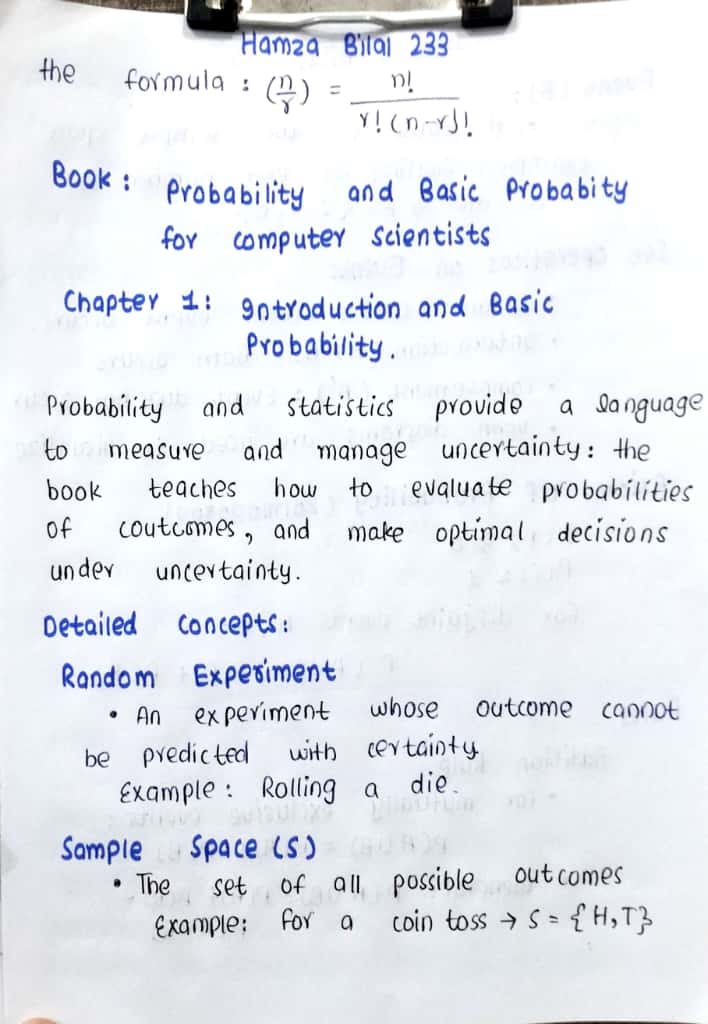 Hamza Bilal 233
the formula : (n/r) = n! / r! (n-r)!
Book : Probability and Basic Probabity
for computer scientists
Chapter 1: Introduction and Basic
Probability.
Probability and statistics provide a language
to measure and manage uncertainty: the
book teaches how to evaluate probabilities
of coutcomes, and make optimal decisions
under uncertainty.
Detailed concepts:
Random Experiment
• An experiment whose outcome cannot
be predicted with certainty
Example : Rolling a die.
Sample Space (S)
• The set of all possible outcomes
Example: for a coin toss → S = {H,T}